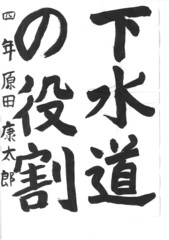 下水道
の役割
四年 原田 康太郎